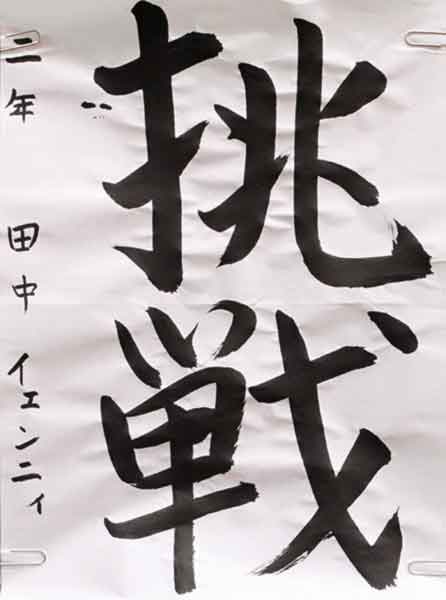 挑戦
二年 田中 イエンニィ